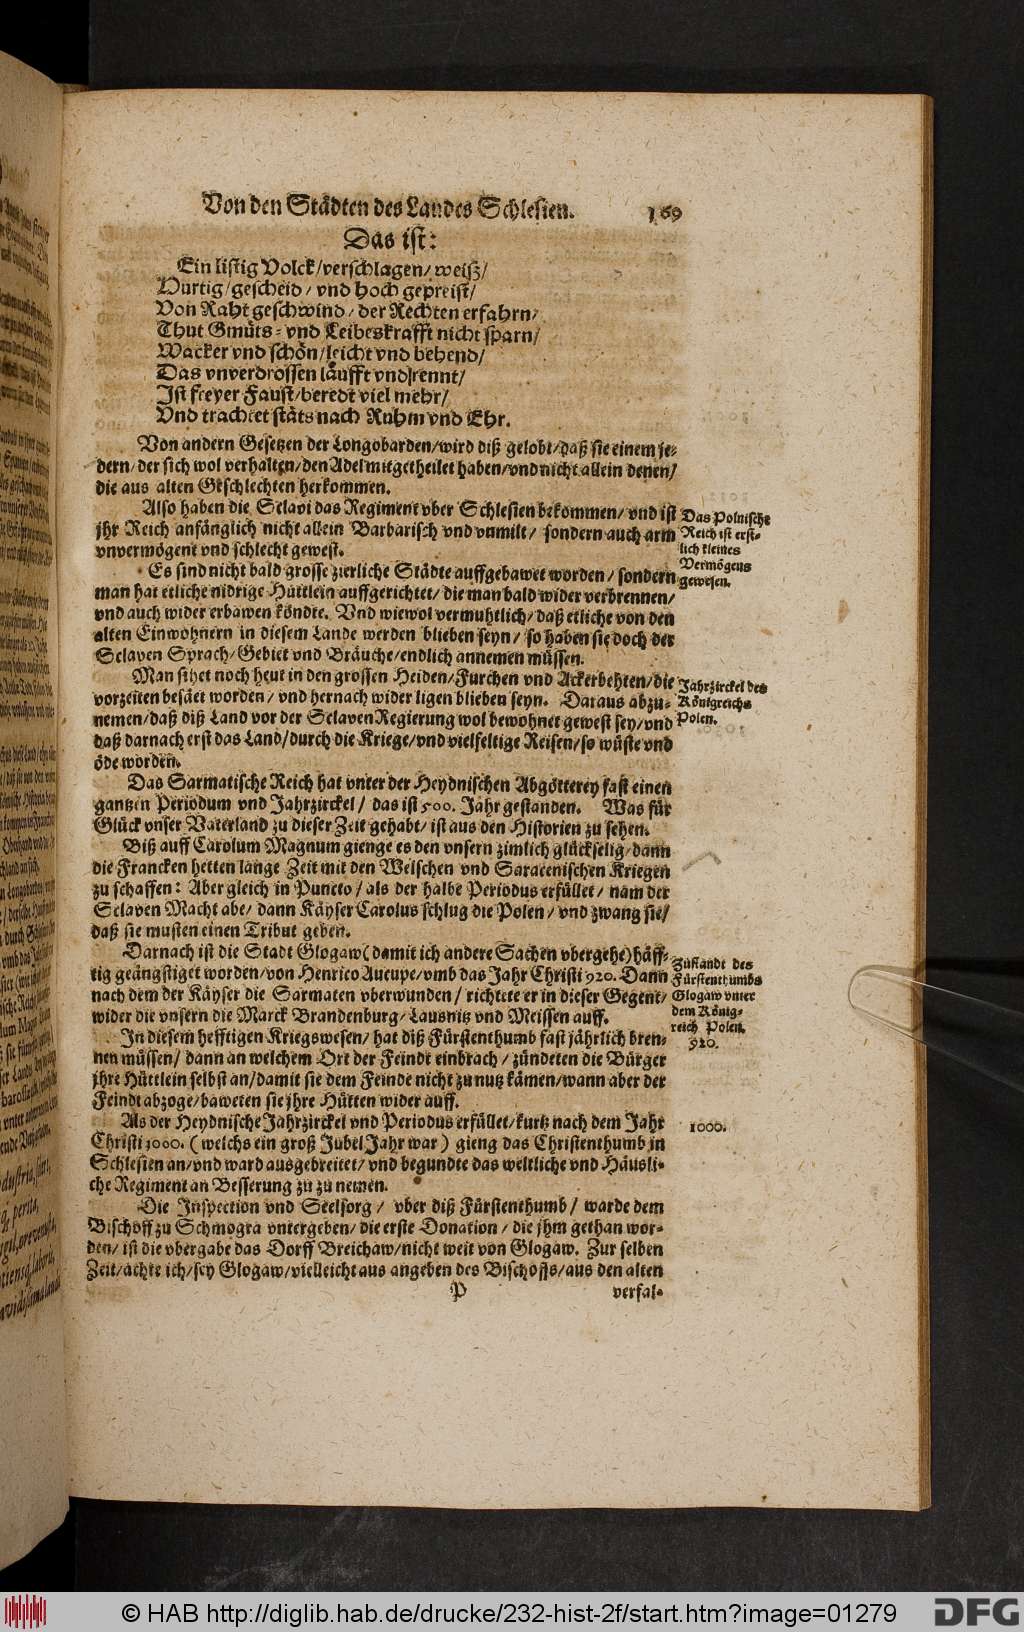 Von den Städten des Landes Schlesien. 169
Das ist:
Ein listig Volck/verschlagen/weiß/
Hurtig/gescheid/vnd hoch gepreist/
Von Raht geschwind/der Rechten erfahrn/
Thut Gmüts- vnd Leibeskrafft nicht sparn/
Wacker vnd schön/leicht vnd behend/
Das vnverdrossen läufft vnd rennt/
Ist freyer Faust/beredt viel mehr/
Vnd trachtet stäts nach Ruhm vnd Ehr.
Von andern Gesetzen der Longobarden/wird diß gelobt/daß sie einem je-
dern/der sich wol verhalten/den Adel mitgetheilet haben/vnd nicht allein denen/
die aus alten Geschlechten herkommen.
Also haben die Sclavi das Regiment vber Schlesien bekommen/vnd ist
jhr Reich anfänglich nicht allein Barbarisch vnd vnmilt/ sondern auch arm
vnvermögent vnd schlecht gewest.
Das Polnische
Reich ist erst-
lich kleines
Vermögens
gewesen.
Es sind nicht bald grosse zierliche Städte auffgebawet worden/ sondern
man hat etliche nidrige Hüttlein auffgerichtet/die man bald wider verbrennen/
vnd auch wider erbawen köndte. Vnd wiewol vermuhtlich/daß etliche von den
alten Einwohnern in diesem Lande werden blieben seyn/ so haben sie doch der
Sclaven Sprach/Gebiet vnd Bräuche/endlich annemen müssen.
Man sihet noch heut in den grossen Heiden/Furchen vnd Ackerbehten/die
vorzeiten besäet worden/ vnd hernach wider ligen blieben seyn. Daraus abzu-
nemen/daß diß Land vor der Sclaven Regierung wol bewohnet gewest sey/vnd
daß darnach erst das Land/durch die Kriege/vnd vielfeltige Reisen/so wüste vnd
öde worden.
Jahrzirckel des
Königreichs
Polen.
Das Sarmatische Reich hat vnter der Heydnischen Abgötterey fast einen
gantzen Periodum vnd Jahrzirckel/ das ist 500. Jahr gestanden. Was für
Glück vnser Vaterland zu dieser Zeit gehabt/ist aus den Historien zu sehen.
Biß auff Carolum Magnum gienge es den vnsern zimlich glückselig/dann
die Francken hetten lange Zeit mit den Welschen vnd Saracenischen Kriegen
zu schaffen: Aber gleich in Puncto/als der halbe Periodus erfüllet/ nam der
Sclaven Macht abe/ dann Käyser Carolus schlug die Polen/ vnd zwang sie/
daß sie musten einen Tribut geben.
Darnach ist die Stadt Glogaw (damit ich andere Sachen vbergehe) häff-
tig geängstiget worden/von Henrico Aucupe/vmb das Jahr Christi 920. Dann
nach dem der Käyser die Sarmaten vberwunden/ richtete er in dieser Gegent/
wider die vnsern die Marck Brandenburg/Lausnitz vnd Meissen auff.
Zustandt des
Fürstenthumbs
Glogaw vnter
dem König-
reich Polen.
920.
In diesem hefftigen Kriegswesen/ hat diß Fürstenthumb fast jährlich bren-
nen müssen/ dann an welchem Ort der Feindt einbrach/ zündeten die Bürger
jhre Hüttlein selbst an/damit sie dem Feinde nicht zu nutz kämen/wann aber der
Feindt abzoge/baweten sie jhre Hütten wider auff.
Als der Heydnische Jahrzirckel vnd Periodus erfüllet/kurtz nach dem Jahr
Christi 1000. (welchs ein groß Jubel Jahr war) gieng das Christenthumb in
Schlesien an/vnd ward ausgebreitet/ vnd begundte das weltliche vnd Häusli-
che Regiment an Besserung zu zu nemen.
1000.
Die Inspection vnd Seelsorg/ vber diß Fürstenthumb/ warde dem
Bischoff zu Schmogra vntergeben/die erste Donation/ die jhm gethan wor-
den/ ist die vbergabe das Dorff Breichaw/nicht weit von Glogaw. Zur selben
Zeit/achte ich/sey Glogaw/vielleicht aus angeben des Bischoffs/aus den alten
P verfal-
© HAB http://diglib.hab.de/drucke/232-hist-2f/start.htm?image=01279
DFG